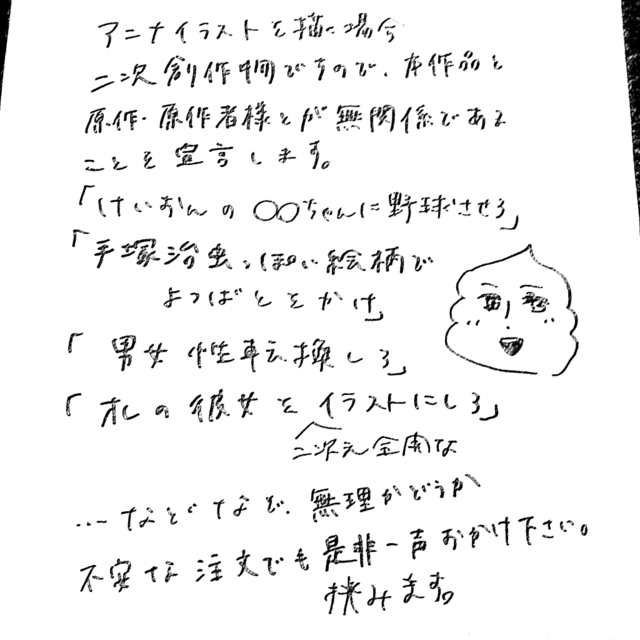 アニメイラストを描く場合
二次創作物ですので、本作品と
原作・原作者様とが無関係である
ことを宣言します。
「けいおんの〇〇ちゃんに野球させろ」
「手塚治虫っぽい絵柄で
よつばとをかけ」
「男女性転換しろ」
「オレの彼女をイラストにしろ」
二次元全南な
…などなど、無理かどうか
不安な注文でも是非一声おかけ下さい。
挑みます。